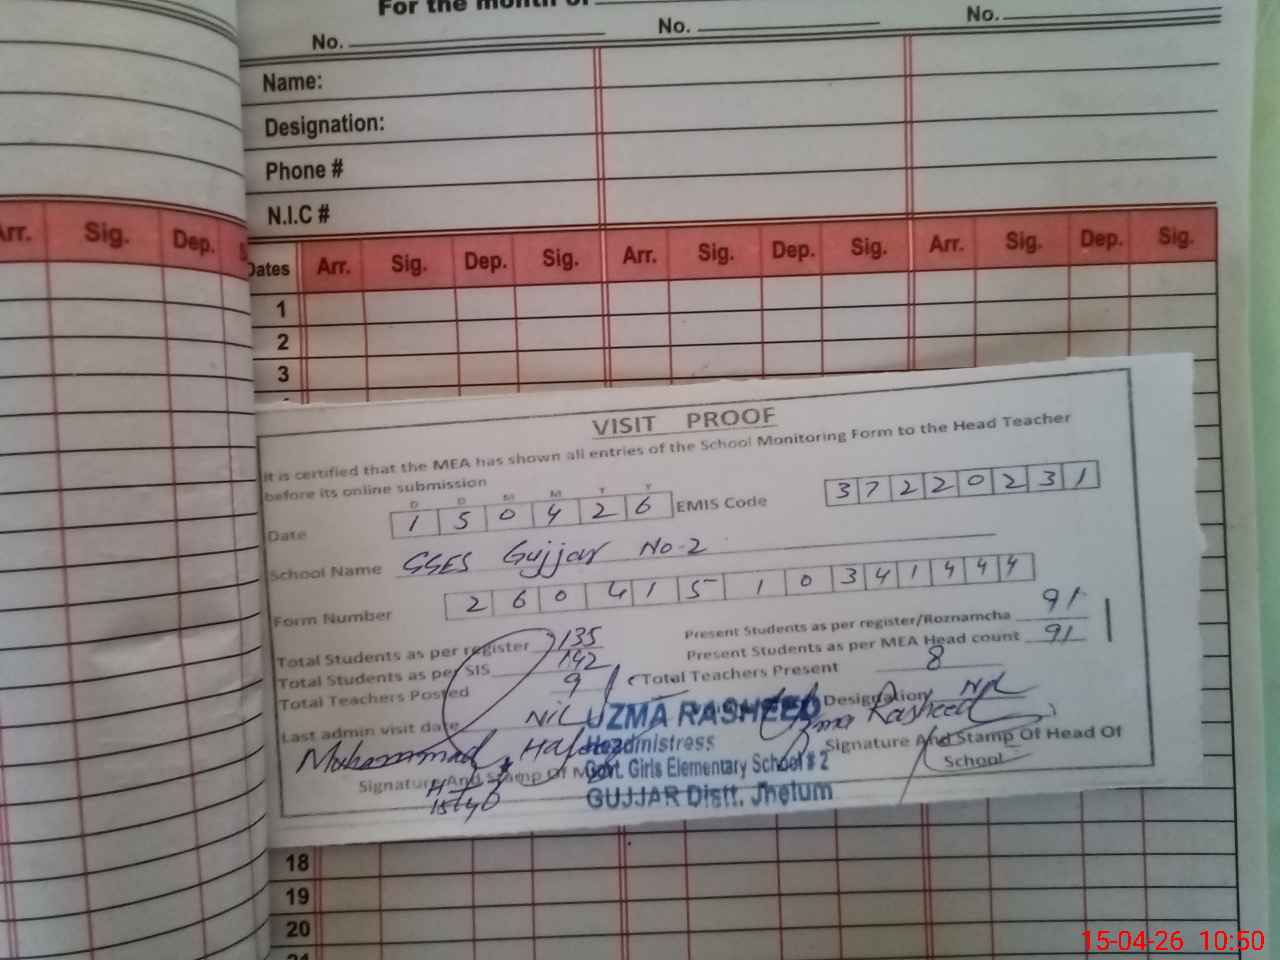 For the month of
No. No. No.
Name:
Designation:
Phone #
N.I.C #
Arr. Sig. Dep.
Dates Arr. Sig. Dep. Sig. Arr. Sig. Dep. Sig. Arr. Sig. Dep. Sig.
1
2
3
VISIT PROOF
It is certified that the MEA has shown all entries of the School Monitoring Form to the Head Teacher
before its online submission
D D M M Y Y
Date 1 5 0 4 2 6 EMIS Code 3 7 2 2 0 2 3 1
School Name GGES Gujjar No-2
Form Number 2 6 0 4 1 5 1 0 3 4 1 4 4 4
Total Students as per register 135 Present Students as per register/Roznamcha 91
Total Students as per SIS 142 Present Students as per MEA Head count 91
Total Teachers Posted 9 Total Teachers Present 8
Last admin visit date Nil Designation Nil
Muhammad Uzma Rasheed
Signature And Stamp Of Signature And Stamp Of Head Of
School
UZMA RASHEED
Headmistress
Govt. Girls Elementary School # 2
GUJJAR Distt. Jhelum
18
19
20
21
15-04-26 10:50